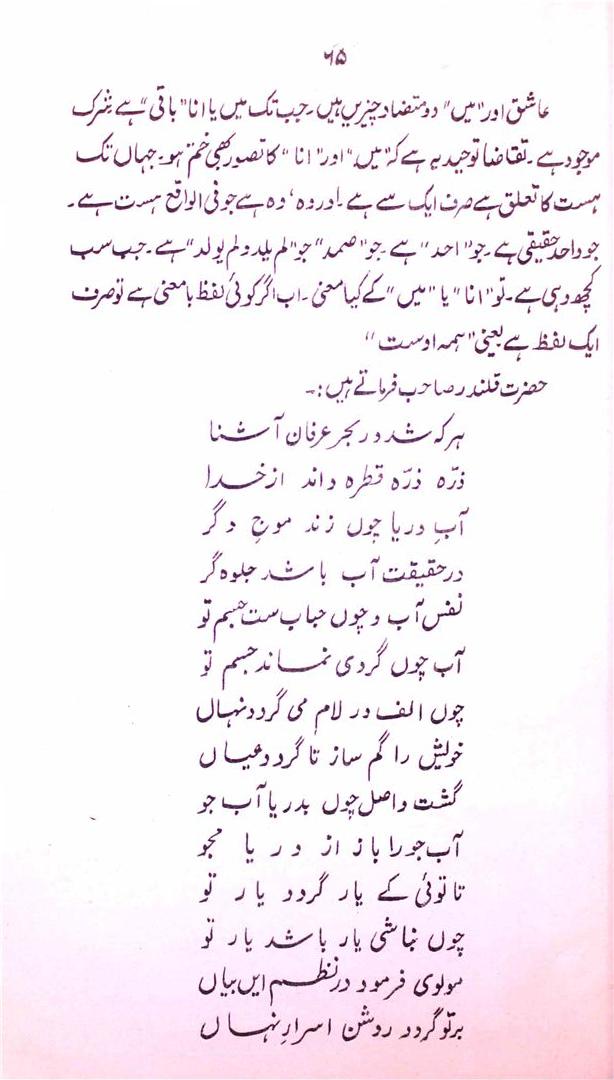 ۶۵
عاشق اور "میں" دو متضاد چیزیں ہیں۔ جب تک میں یا انا "باقی" ہے شرک
موجود ہے۔ تقاضا توحید یہ ہے کہ "میں" اور "انا" کا تصور بھی ختم ہو۔ جہاں تک
ہست کا تعلق ہے صرف ایک سے ہے۔ اور وہ، وہ ہے جو فی الواقع ہست ہے۔
جو واحد حقیقی ہے۔ جو "احد" ہے۔ جو "صمد" جو "لم یلد ولم یولد" ہے۔ جب سب
کچھ وہی ہے۔ تو "انا" یا "میں" کے کیا معنی۔ اب اگر کوئی لفظ بامعنی ہے تو صرف
ایک لفظ ہے یعنی "ہمہ اوست"
حضرت قلندر صاحب فرماتے ہیں:۔
ہر کہ شد در بحر عرفان آشنا
ذرّہ ذرّہ قطرہ داند از خدا
آبِ دریا چوں زند موجِ دگر
در حقیقت آب باشد جلوہ گر
نفس آب و چوں حباب ست جسم تو
آب چوں گردی نماند جسم تو
چوں الف در لام می گردد نہاں
خویش را گم ساز تا گردد عیاں
گشت واصل چوں بدریا آب جو
آب جو را باز از دریا مجو
تا توئی کے یار گردد یار تو
چوں نباشی یار باشد یار تو
مولوی فرمود در نظم ایں بیاں
بر تو گردد روشن اسرارِ نہاں